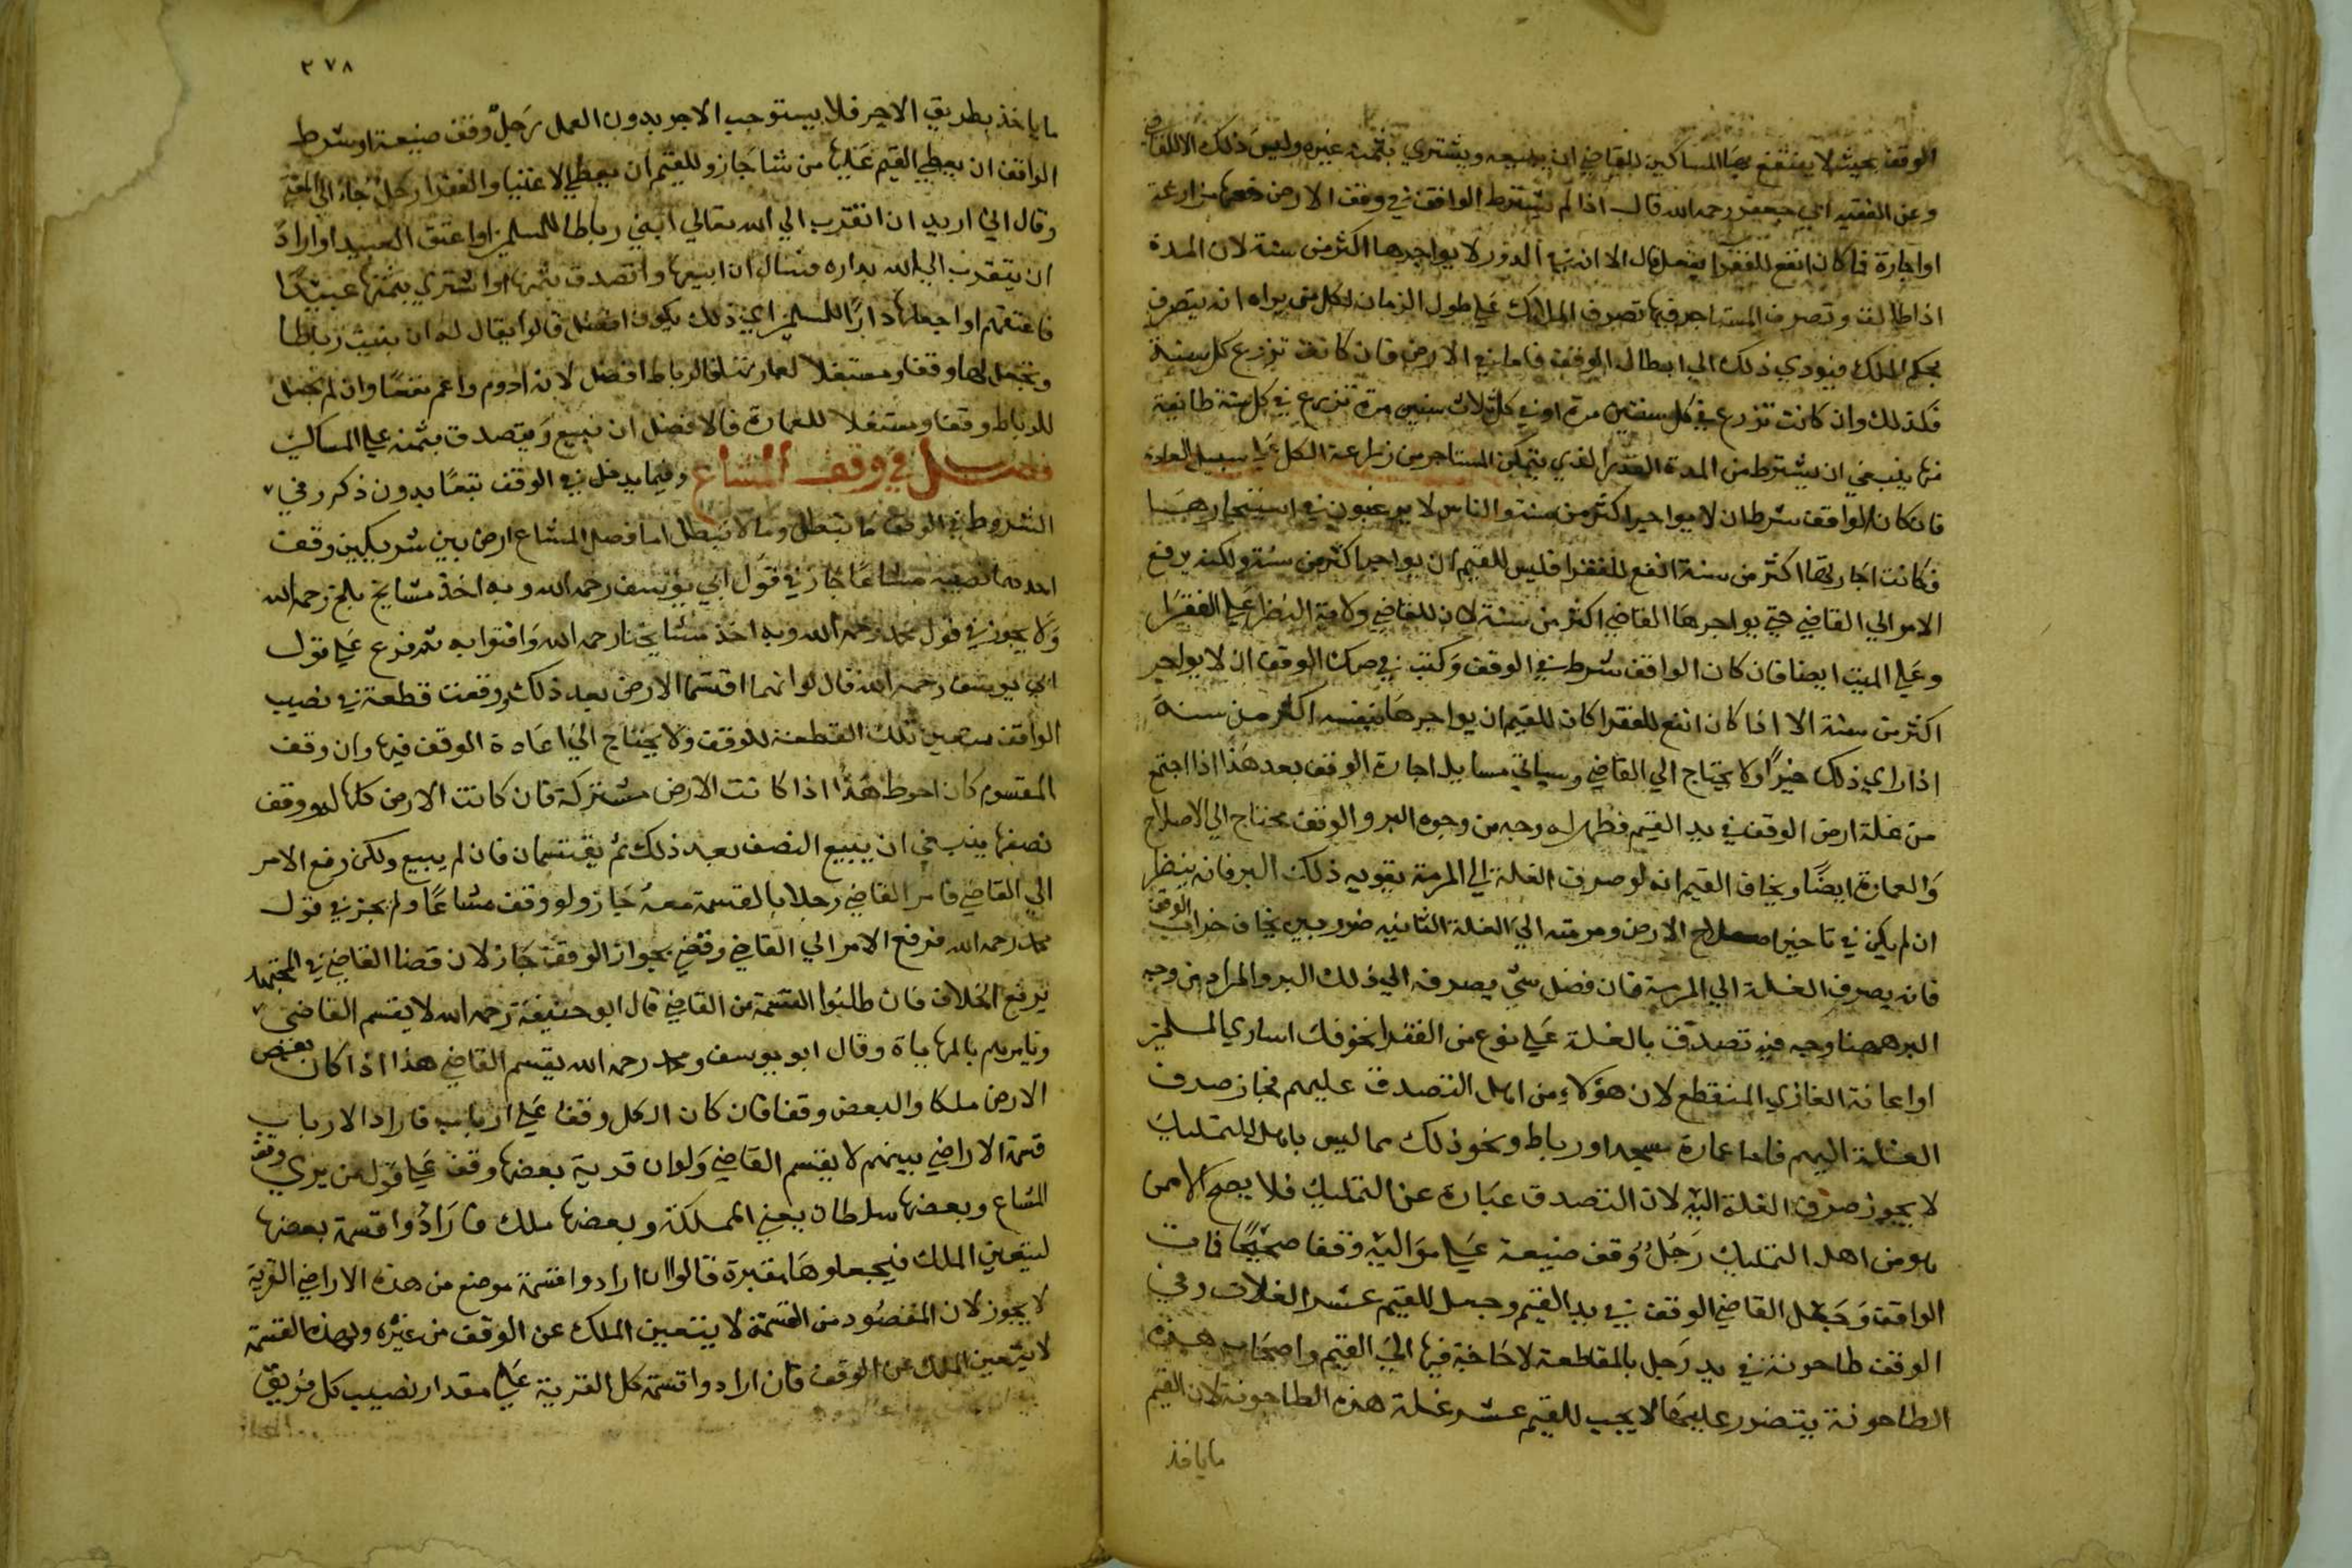 الوقف بحيث لا ينتفع بها المساكين للقاضي ان يبيعه ويشتري بثمنه غيره وليس ذلك الا للقاضي
وعن الفقيه ابي جعفر رحمه الله قال اذا لم يشترط الواقف في وقف الارض دفعها مزارعة
او اجارة فما كان انفع للفقرا يفعل قال الا ان في الدور لا يواجرها اكثر من سنة لان المدة
اذا طالت وتصرف المستاجر فيها تصرف الملاك على طول الزمان لكل من يراه انه يتصرف
بحكم الملك فيودي ذلك الى ابطال الوقف فاما في الارض فان كانت تزرع كل سنة
فكذلك وان كانت تزرع في كل سنتين مرة او في كل ثلاث سنين مرة تزرع في كل سنة طائفة
منها ينبغي ان يشترط من المدة القدر الذي يتمكن المستاجر من زراعة الكل على سبيل العادة
فان كان الواقف شرط ان لا يواجر اكثر من سنة والناس لا يرغبون في استيجارها
فكانت اجارتها اكثر من سنة انفع للفقرا فليس للقيم ان يواجر اكثر من سنة ولكنه يرفع
الامر الى القاضي حتى يواجرها القاضي اكثر من سنة لان للقاضي ولاية النظر على الفقرا
وعلى الميت ايضا فان كان الواقف شرط في الوقف وكتب في صك الوقف ان لا يواجر
اكثر من سنة الا اذا كان انفع للفقرا كان للقيم ان يواجرها بنفسه اكثر من سنة
اذا راي ذلك خيرًا ولا يحتاج الي القاضي وسياتي مسايل اجارة الوقف بعد هذا اذا اجتمع
من غلة ارض الوقف في يد القيم فظهر له وجه من وجوه البر والوقف يحتاج الي الاصلاح
والعمارة ايضًا ويخاف القيم انه لو صرف الغلة الي المرمة يفوته ذلك البر فانه ينظر
ان لم يكن في تاخير اصلاح الارض ومرمته الي الغلة الثانيه ضرر بين يخاف خراب الوقف
فانه يصرف الغلة الي المرمة فان فضل شي يصرفه الي ذلك البر والمراد من وجه
البر ههنا وجه فيه تصدق بالغلة على نوع من الفقرا نحو فك اساري المسلمين
او اعانة الغازي المنقطع لان هؤلاء من اهل التصدق عليهم فجاز صرف
الغلة اليهم فاما عمارة مسجد او رباط ونحو ذلك مما ليس باهل للتمليك
لا يجوز صرف الغلة اليه لان التصدق عبارة عن التمليك فلا يصح الا ممن
هو من اهل التمليك رجل وقف ضيعة على مواليه وقفا صحيحًا فمات
الواقف وجعل القاضي الوقف في يد القيم وجعل للقيم عشر الغلات وفي
الوقف طاحونة في يد رجل بالمقاطعة لا حاجة فيها الي القيم واصحاب هذه
الطاحونة يتضور عليها لا يجب للقيم عشر غلة هذه الطاحونة لان القيم
ماياخذ
٣٧٨
ماياخذ بطريق الاجر فلا يستوجب الاجر بدون العمل رجل وقف ضيعة وشرط
الواقف ان يعطي القيم غلتها من شا جاز وللقيم ان يعطي الاغنيا والفقرا رجل جاء الي الفقيه
وقال اني اريد ان اتقرب الي الله تعالي ابني رباطا للمسلمين او اعتق العبيد او اراد
ان يتقرب الي الله بداره فسال ان ابيعها واتصدق بثمنها او اشتري بثمنها عبيدًا
فاعتقهم او اجعلها دارًا للمسلمين اي ذلك يكون افضل قالوا يقال له ان بنيت رباطا
وتجعل لها وقفا ومستغلا لعمارتها فالرباط افضل لانه ادوم واعم نفعًا وان لم تجعل
للرباط وقفا ومستغلا للعمارة فالافضل ان تبيع وتتصدق بثمنه على المساكين
فصل في وقف المشاع وفيما يدخل في الوقف تبعًا بدون ذكر وفي
الشروط في الوقف ما تبطل وما لا تبطل اما فصل المشاع ارض بين شريكين وقف
احدهما نصيبه مشاعًا جاز في قول ابي يوسف رحمه الله وبه اخذ مشايخ بلخ رحمهم الله
ولا يجوز في قول محمد رحمه الله وبه اخذ مشايخنا رحمه الله وافتوا به ثم فرع على قول
ابي يوسف رحمه الله فقال لو انهما اقتسما الارض بعد ذلك ووقعت قطعة في نصيب
الواقف تتعين تلك القطعة للوقف ولا يحتاج الي اعادة الوقف فيها وان وقف
المقسوم كان احوط هذا اذا كانت الارض مشتركة فان كانت الارض كلها له ووقف
نصفها ينبغي ان يبيع النصف بعد ذلك ثم يقتسمان فان لم يبيع ولكن رفع الامر
الي القاضي فامر القاضي رجلا بالقسمة معه جاز ولو وقف مشاعًا ولم يجز في قول
محمد رحمه الله فرفع الامر الي القاضي وقضي بجواز الوقف جاز لان قضا القاضي في المجتهد
يرفع الخلاف فان طلبوا القسمة من القاضي قال ابو حنيفة رحمه الله لا يقسم القاضي
ويامرهم بالمهاياة وقال ابو يوسف ومحمد رحمه الله يقسم القاضي هذا اذا كان بعض
الارض ملكا والبعض وقفا فان كان الكل وقف على ارباب فاراد الارباب
قسمة الاراضي بينهم لا يقسم القاضي ولو ان قرية بعضها وقف على قول من يري وقف
المشاع وبعضها سلطان يعني المملكة وبعضها ملك فارادوا قسمة بعضها
ليتعين الملك فيجعلوها مقبرة قالوا ان ارادوا قسمة موضع من هذه الاراضي القرية
لا يجوز لان المقصود من القسمة لا يتعين الملك عن الوقف من غيره وبهذه القسمة
لا يتعين الملك عن الوقف فان ارادوا قسمة كل القرية على مقدار نصيب كل فريق